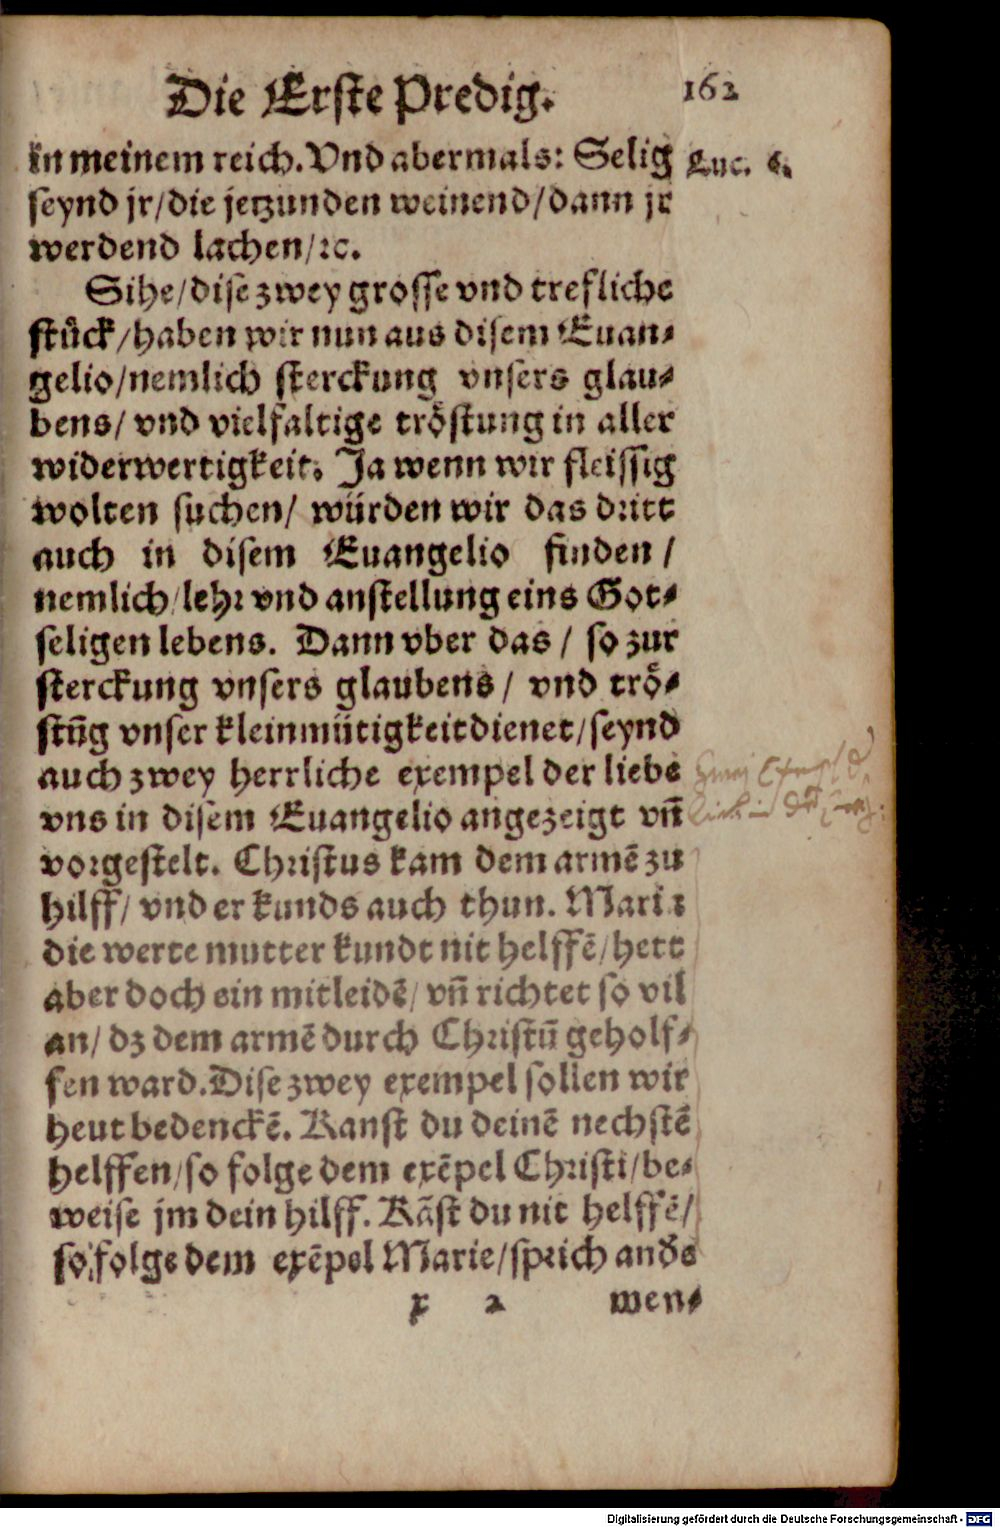 Die Erste Predig. 162
in meinem reich. Vnd abermals: Selig Luc. 6.
seynd jr/die jetzunden weinend/dann jr
werdend lachen/ꝛc.
Sihe/dise zwey grosse vnd trefliche
stuͦck/haben wir nun aus disem Euan⸗
gelio/nemlich sterckung vnsers glau⸗
bens/ vnd vielfaltige troͤstung in aller
widerwertigkeit. Ja wenn wir fleissig
wolten suchen/ würden wir das dritt
auch in disem Euangelio finden/
nemlich/lehr vnd anstellung eins Got⸗
seligen lebens. Dann vber das/ so zur
sterckung vnsers glaubens/ vnd troͤ⸗
stũg vnser kleinmütigkeit dienet/seynd
auch zwey herrliche exempel der liebe
vns in disem Euangelio angezeigt vñ
vorgestelt. Christus kam dem armẽ zu
hilff/ vnd er kunds auch thun. Maria
die werte mutter kundt nit helffẽ/hett
aber doch ein mitleidẽ/ vñ richtet so vil
an/ dz dem armẽ durch Christũ geholf⸗
fen ward. Dise zwey exempel sollen wir
heut bedenckẽ. Kanst du deinẽ nechstẽ
helffen/so folge dem exẽpel Christi/be⸗
weise jm dein hilff. Kãst du nit helffẽ/
so folge dem exẽpel Marie/sprich anďe
x 2 wen⸗
Digitalisierung gefördert durch die Deutsche Forschungsgemeinschaft - DFG